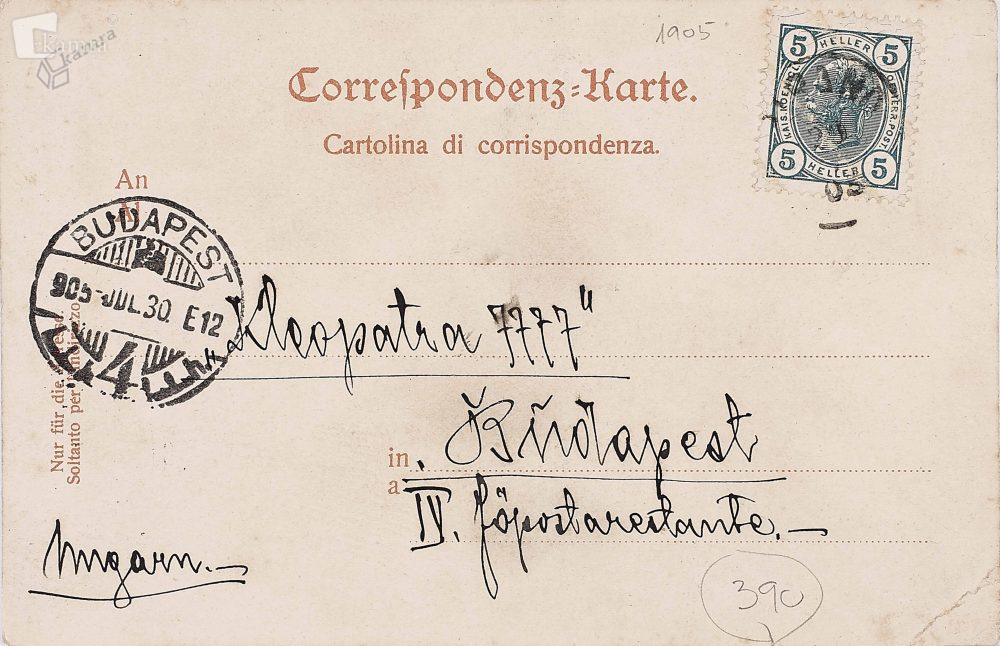 kamra
kamara
1905
Correspondenz-Karte.
Cartolina di corrispondenza.
5 HELLER 5
KAIS. KOENIGL. OESTERR. POST.
5 HELLER 5
05
An
Al
BUDAPEST
905-JUL.30. E12
4
Nur für die
Soltanto per
„Kleopatra 7777"
in Budapest
a
IV. főpostarestante.-
Ungarn.-
390